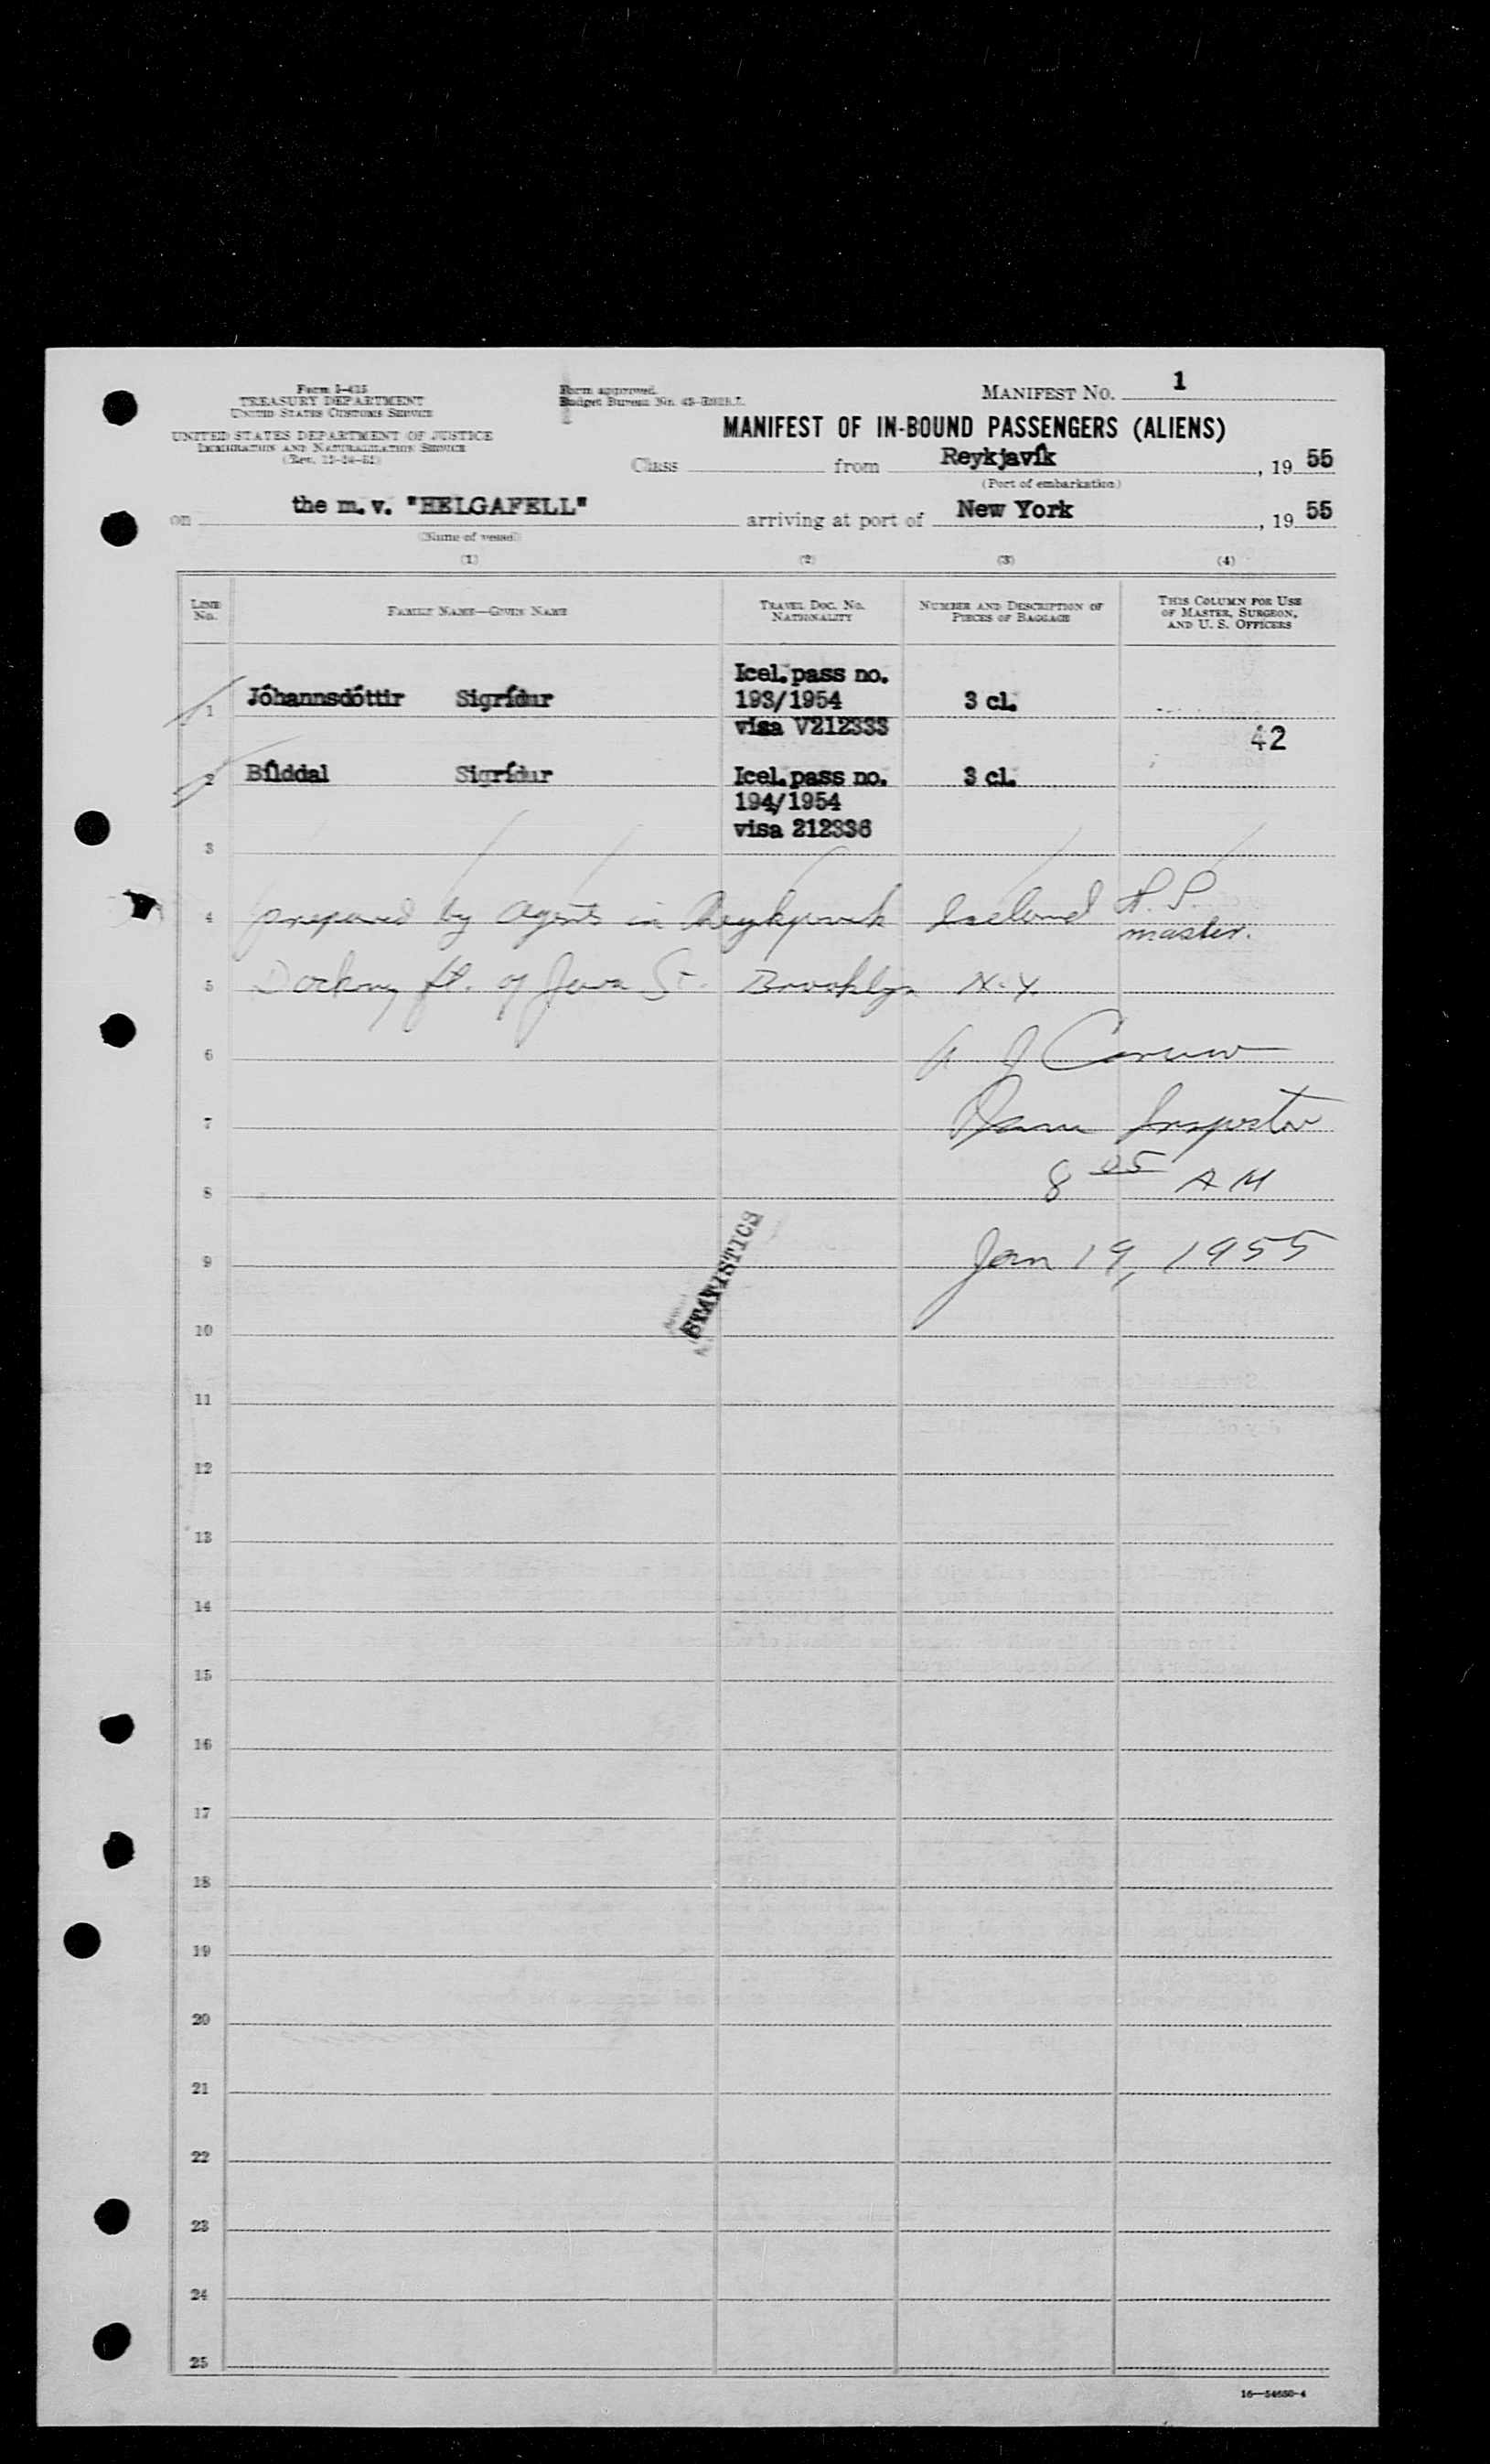 Form I-415
TREASURY DEPARTMENT
UNITED STATES CUSTOMS SERVICE
UNITED STATES DEPARTMENT OF JUSTICE
IMMIGRATION AND NATURALIZATION SERVICE
Form approved.
Budget Bureau No.
MANIFEST NO. 1
MANIFEST OF IN-BOUND PASSENGERS (ALIENS)
Class from Reykjavík, 19 55
(Port of embarkation)
on the m.v. "HELGAFELL" arriving at port of New York, 19 55
(Name of vessel)
(1) (2) (3) (4)
LINE No. FAMILY NAME—GIVEN NAME TRAVEL DOC. No. NATIONALITY NUMBER AND DESCRIPTION OF PIECES OF BAGGAGE THIS COLUMN FOR USE OF MASTER, SURGEON, AND U. S. OFFICERS
Icel. pass no.
1 Jóhannsdóttir Sigrídur 193/1954 3 cl.
visa V212333
42
2 Bílddal Sigrídur Icel. pass no. 3 cl.
194/1954
visa 212336
3
4 prepared by Agents in Reykjavik Iceland H. P.
master.
5 Docking ft. of Java St. Brooklyn N.Y.
6
7 Inspector
8 8 05 AM
STATISTICS
9 Jan 19, 1955
10
11
12
13
14
15
16
17
18
19
20
21
22
23
24
25